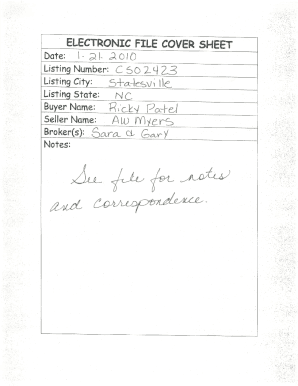 ELECTRONIC FILE COVER SHEET
Date: 1-21-2010
Listing Number: CS02423
Listing City: Statesville
Listing State: NC
Buyer Name: Ricky Patel
Seller Name: AW Myers
Broker(s): Sara & Gary
Notes:
See file for notes
and correspondence.